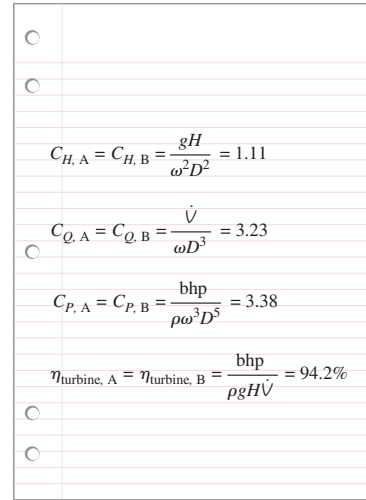 C_{H, A} = C_{H, B} = \frac{gH}{ω²D²} = 1.11
C_{Q, A} = C_{Q, B} = \frac{V̇}{ωD³} = 3.23
C_{P, A} = C_{P, B} = \frac{bhp}{ρω³D⁵} = 3.38
η_{turbine, A} = η_{turbine, B} = \frac{bhp}{ρgHV̇} = 94.2%